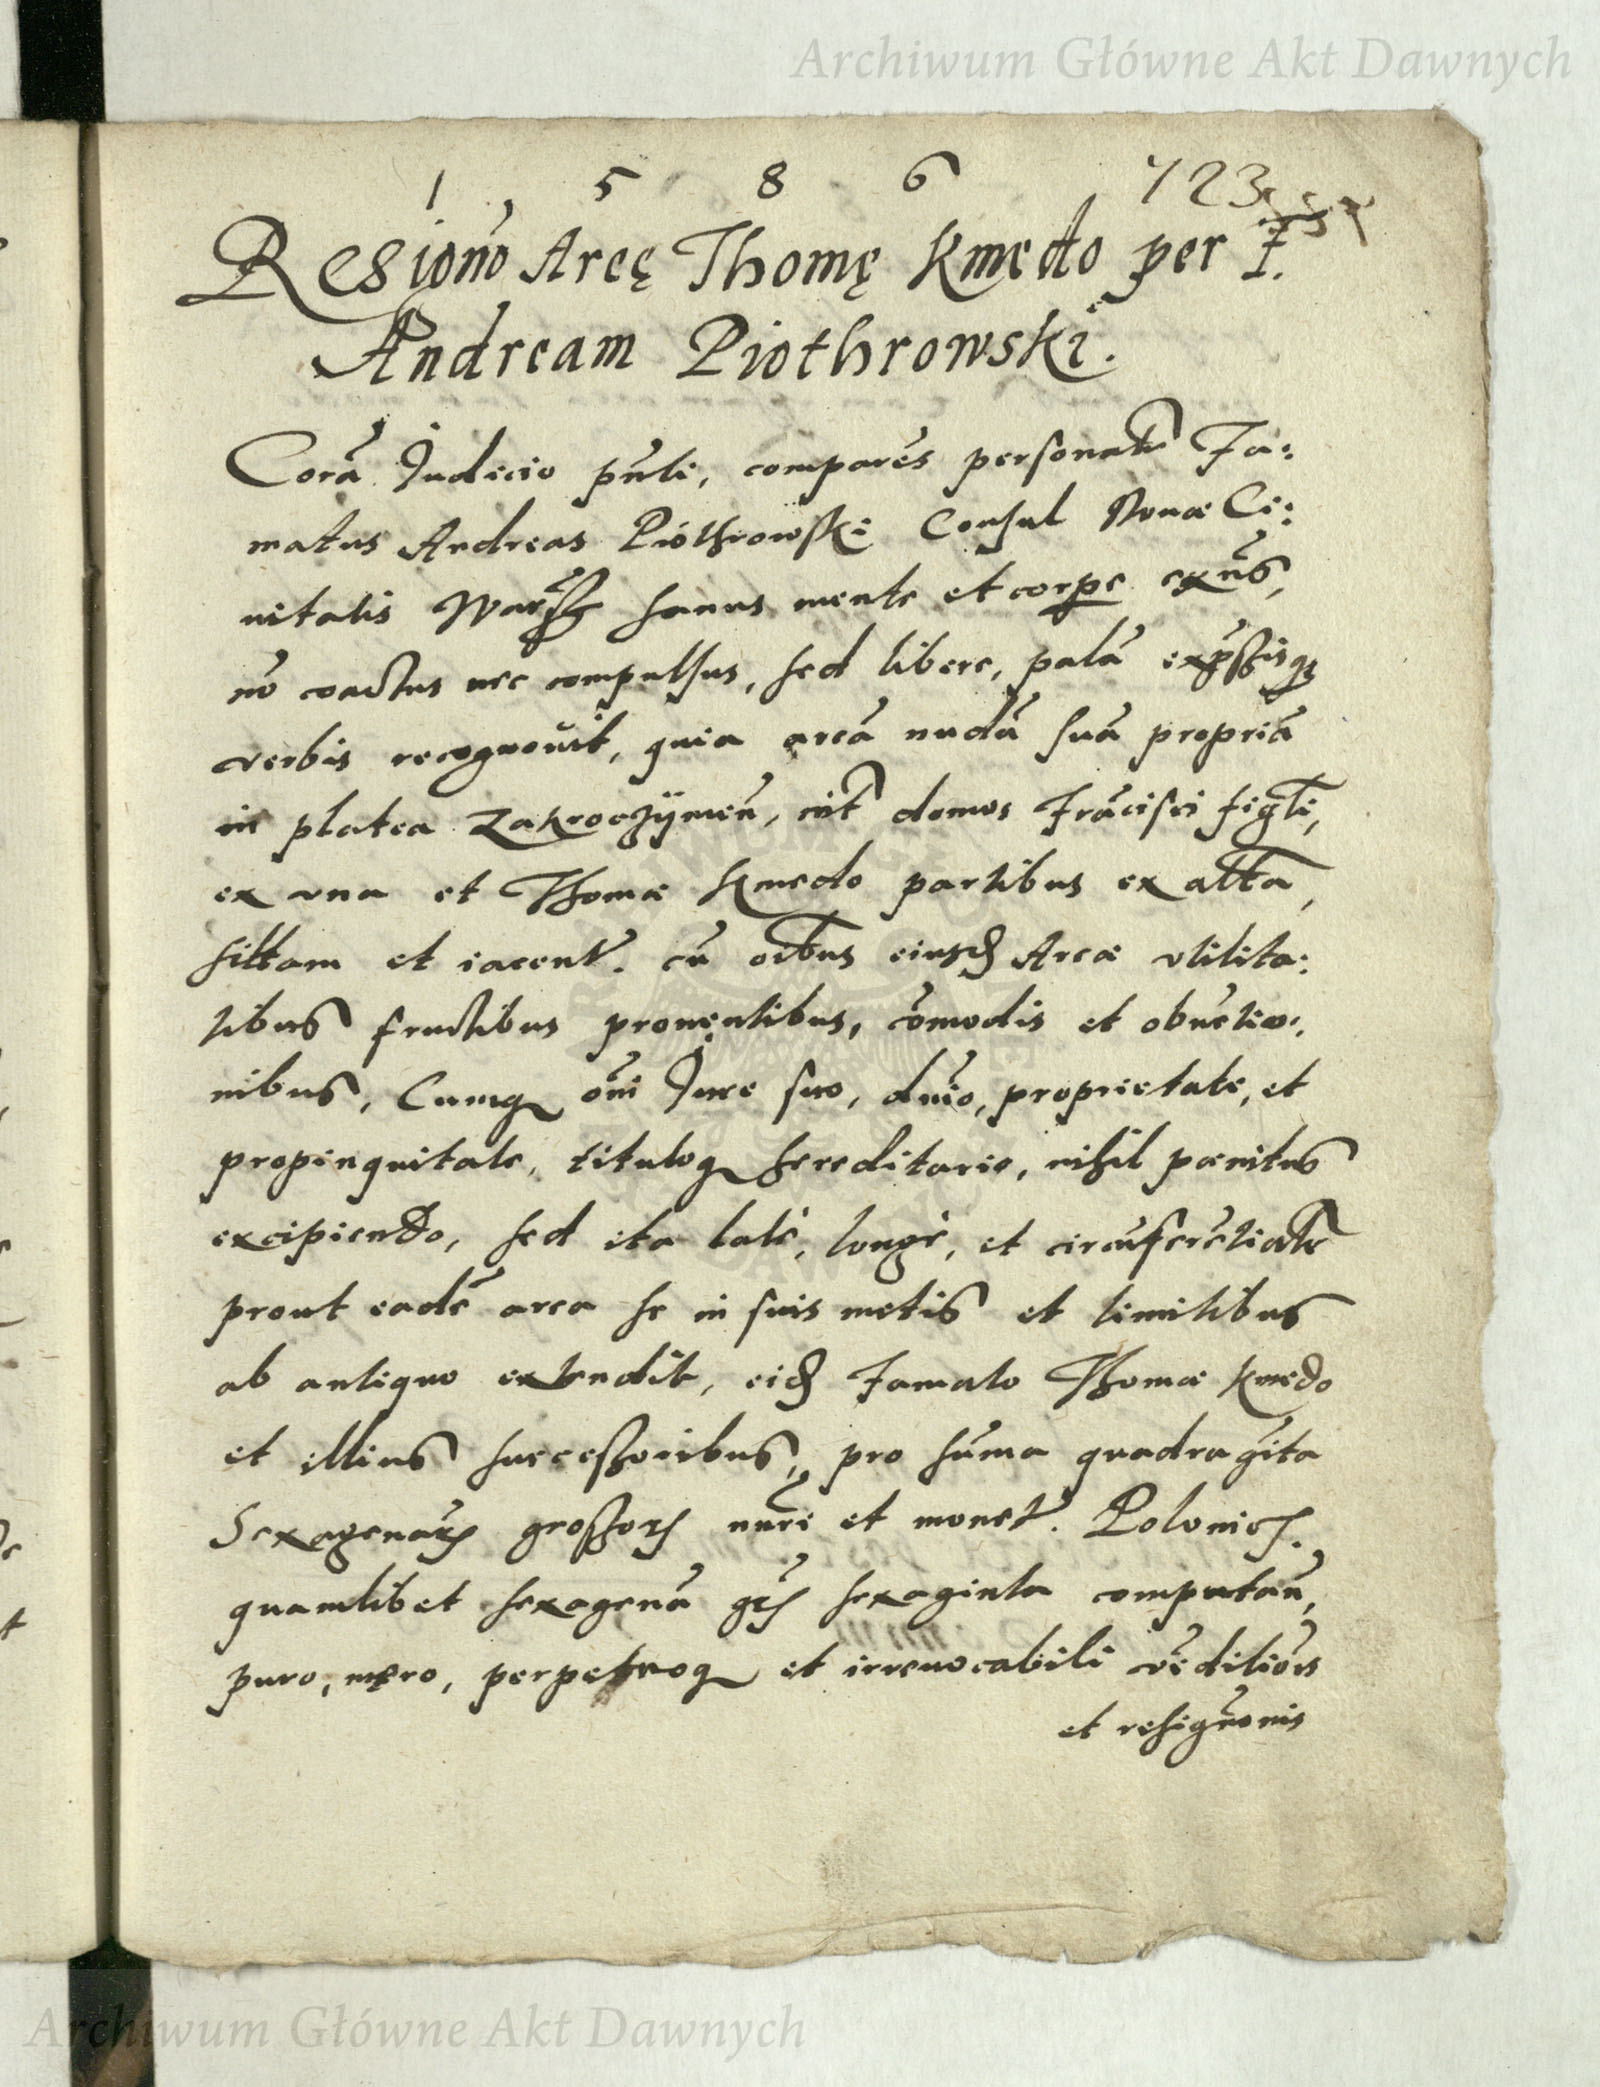 Archiwum Główne Akt Dawnych
1 5 8 6 723
Resigno Arcę Thomę Kmędo per F.
Andream Piothrowski.
Corā Judicio pn̄ti, comparēs personalr Fa:
matus Andreas Piothrowski Consul Nouæ Ci:
uitatis Warss sanus mente et corpe exn̄s,
nō coactus nec compulsus, sed libere, palā exp̄ssisq
verbis recognouit, quia areā nudā suā propriā
in platea Zakroczÿmen̄, int domos Frācisci figli,
ex vna et Thomæ Kmedo partibus ex altta,
sittam et iacent. cū oībus eiusd Areæ vtilita:
tibus fructibus prouętibus, cōmodis et obuētio:
nibus, Cumq om̄i Jure suo, dn̄io, proprietate, et
propinquitate, tituloq hereditario, nihil pœnitus
excipiendo, sed ita latè, longè, et circūferētialr
prout eadē area se in suis metis et limitibus
ab antiquo extendit, eid Famato Thomæ Kmedo
et illius successoribus, pro sūma quadragīta
Sexagenar grossor nūri et monet. Polonic.
quamlibet sexagenā gr sexaginta computan̄,
puro, męro, perpetuoq et irreuocabili vēditiōis
et resignōnis
Archiwum Główne Akt Dawnych